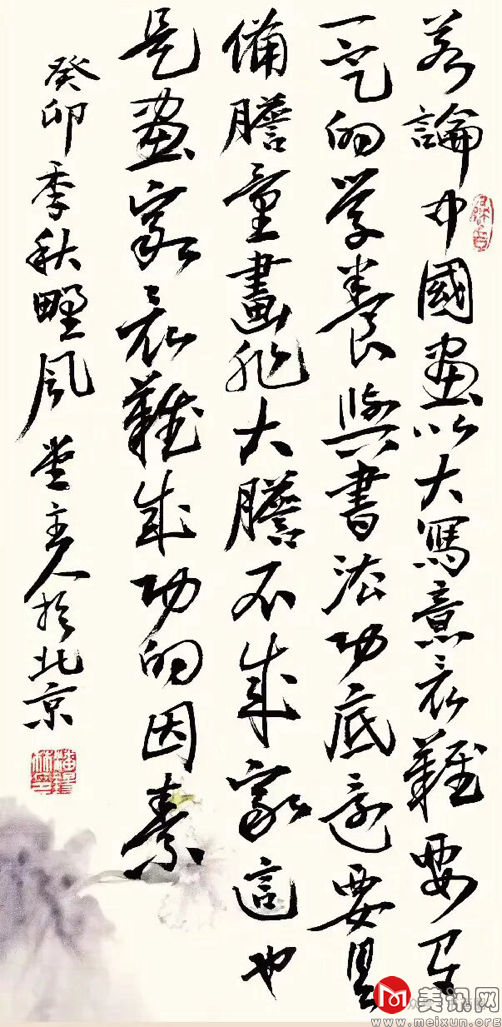 若論中國画以大寫意最難要有
一定的学养與書法功底還要具
備膽量畫非大膽不成家這也
是画家最難成功的因素
癸卯季秋野風堂主人於北京
美讯网
www.meixun.org